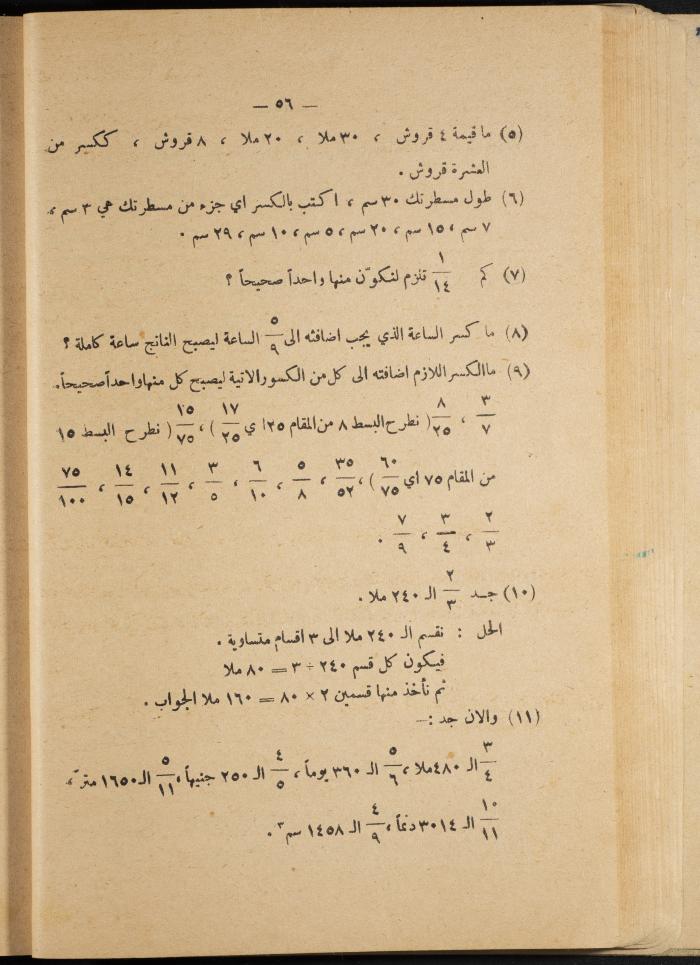 — ٥٦ —
(٥) ما قيمة ٤ قروش ، ٣٠ ملا ، ٢٠ ملا ، ٨ قروش ، ككسر من
العشرة قروش .
(٦) طول مسطرتك ٣٠ سم ، اكتب بالكسر اي جزء من مسطرتك هي ٣ سم ،
٧ سم ، ١٥ سم ، ٢٠ سم ، ٥ سم ، ١٠ سم ، ٢٩ سم .
(٧) كم ١/١٤ تلزم لتكوّن منها واحداً صحيحاً ؟
(٨) ما كسر الساعة الذي يجب اضافته الى ٥/٩ الساعة ليصبح الناتج ساعة كاملة ؟
(٩) ما الكسر اللازم اضافته الى كل من الكسور الاتية ليصبح كل منها واحداً صحيحاً .
٣/٧ ، ٨/٢٥ ( نطرح البسط ٨ من المقام ٢٥ اي ١٧/٢٥ ) ، ١٥/٧٥ ( نطرح البسط ١٥
من المقام ٧٥ اي ٦٠/٧٥ ) ، ٣٥/٥٢ ، ٥/٨ ، ٦/١٠ ، ٣/٥ ، ١١/١٢ ، ١٤/١٥ ، ٧٥/١٠٠
٢/٣ ، ٣/٤ ، ٧/٩ .
(١٠) جد ٢/٣ الـ ٢٤٠ ملا .
الحل : نقسم الـ ٢٤٠ ملا الى ٣ اقسام متساوية .
فيكون كل قسم ٢٤٠ ÷ ٣ = ٨٠ ملا
ثم نأخذ منها قسمين ٢ × ٨٠ = ١٦٠ ملا الجواب .
(١١) والان جد :—
٣/٤ الـ ٤٨٠ ملا ، ٥/٦ الـ ٣٦٠ يوماً ، ٤/٥ الـ ٢٥٠ جنيهاً ، ٥/١١ الـ ١٦٥٠ متر٢ ،
١٠/١١ الـ ٣٠١٤ دنماً ، ٤/٩ الـ ١٤٥٨ سم٣ .